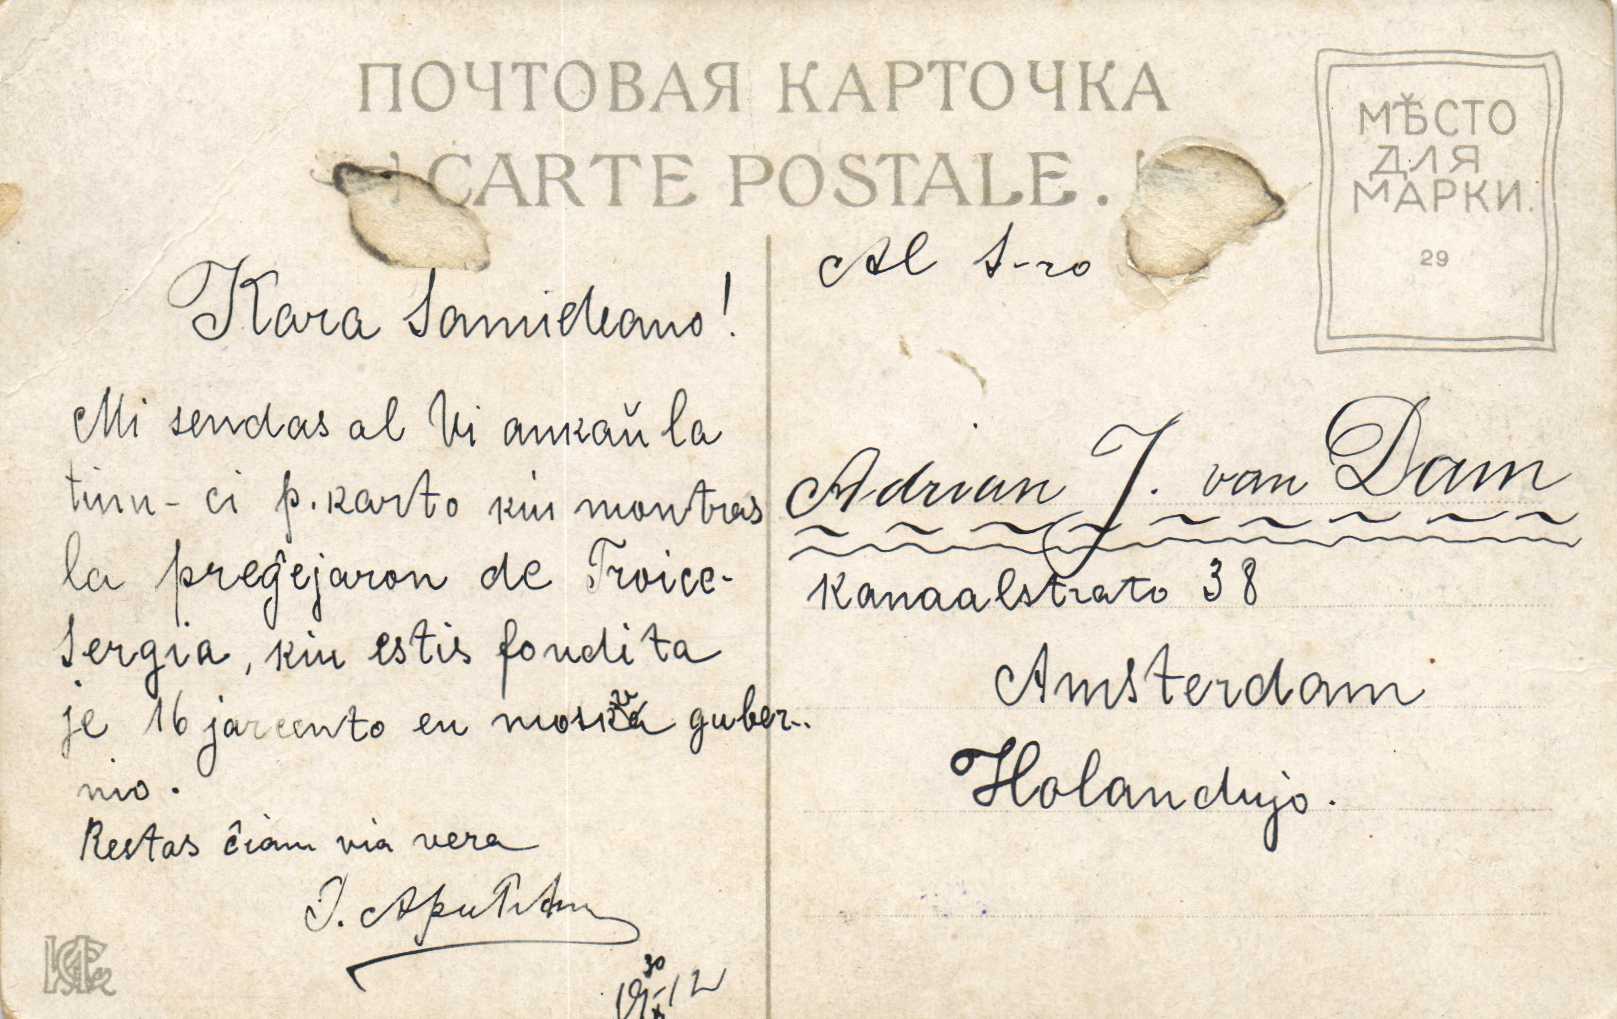 ПОЧТОВАЯ КАРТОЧКА
CARTE POSTALE.
МѢСТО
ДЛЯ
МАРКИ.
29
Kara Samideano!
Mi sendas al Vi ankaŭ la
tiun-ci p. karto kiu montras
la preĝejaron de Troice-
Sergia, kiu estis fondita
je 16 jarcento en moskva guber-
nio.
Restas ĉiam via vera
Al S-ro
Adrian J. van Dam
Kanaalstrato 38
Amsterdam
Holandujo.